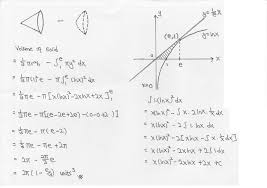 Volume of Solid
= ⅓πr²h - ∫₁ᵉ πy² dx
= ⅓π(1)²e - π∫₁ᵉ (lnx)² dx
= ⅓πe - π[x(lnx)² - 2xlnx + 2x]₁ᵉ
= ⅓πe - π[(e-2e+2e) - (0-0+2)]
= ⅓πe - π(e-2)
= ⅓πe - πe + 2π
= 2π - ⅔πe
units³
y = 1/e x
y = lnx
(e,1)
e
x=0
∫(lnx)² dx
= x(lnx)² - ∫x·2lnx·1/x dx
= x(lnx)² - 2∫lnx dx
= x(lnx)² - 2[xlnx - ∫x·1/x dx]
= x(lnx)² - 2xlnx + 2∫1 dx
= x(lnx)² - 2xlnx + 2x + c